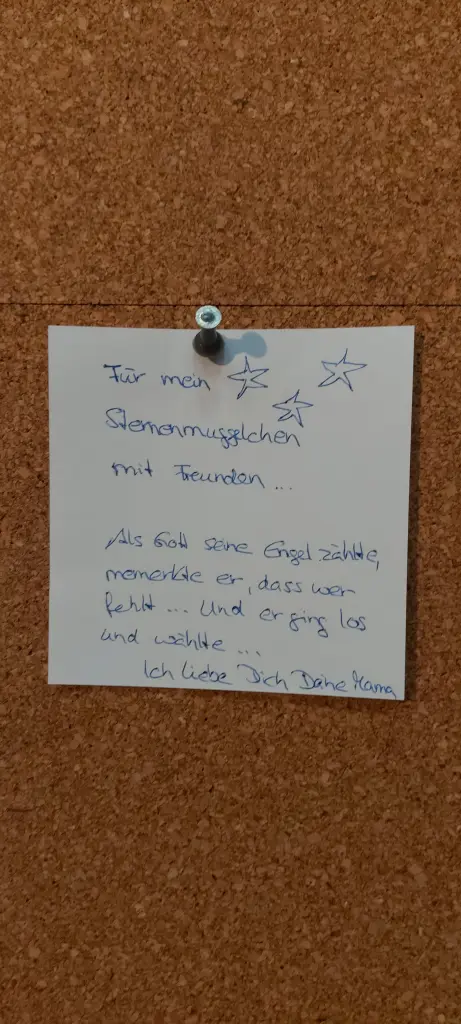 Für mein
Sternenmuggelchen
mit Freunden ...
Als Gott seine Engel zählte,
memerkte er, dass wer
fehlt ... Und er ging los
und wählte ...
Ich liebe Dich Deine Mama